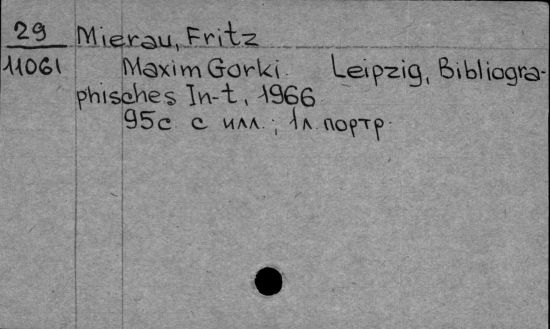 29 Mierau, Fritz
11061 Maxim Gorki. Leipzig, Bibliogra-
phisches In-t, 1966.
95с. с илл.; 1л. портр.